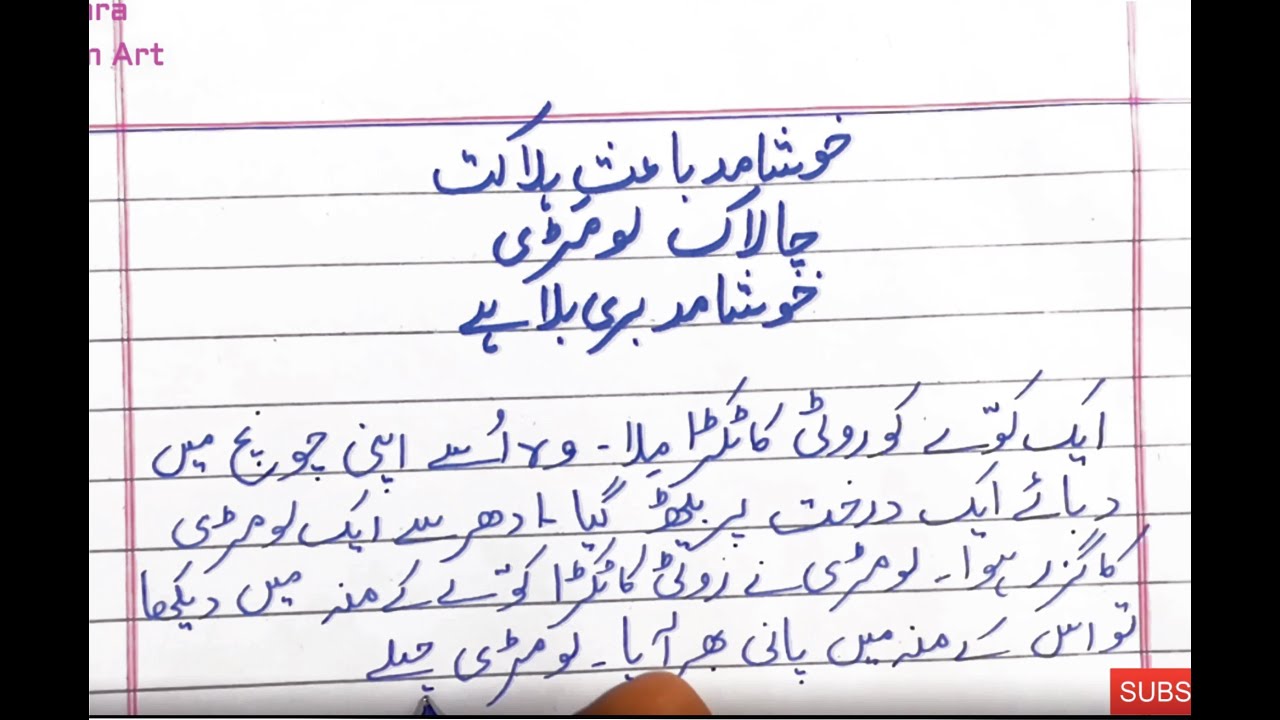 ara
n Art
خوشامد باعثِ ہلاکت
چالاک لومڑی
خوشامد بری بلا ہے
ایک کوّے کو روٹی کا ٹکڑا مِلا۔ وہ اُسے اپنی چونچ میں
دبائے ایک درخت پر بیٹھ گیا۔ ادھر سے ایک لومڑی
کا گزر ہوا۔ لومڑی نے روٹی کا ٹکڑا کوّے کے منہ میں دیکھا
تو اس کے منہ میں پانی بھر آیا۔ لومڑی
SUBS